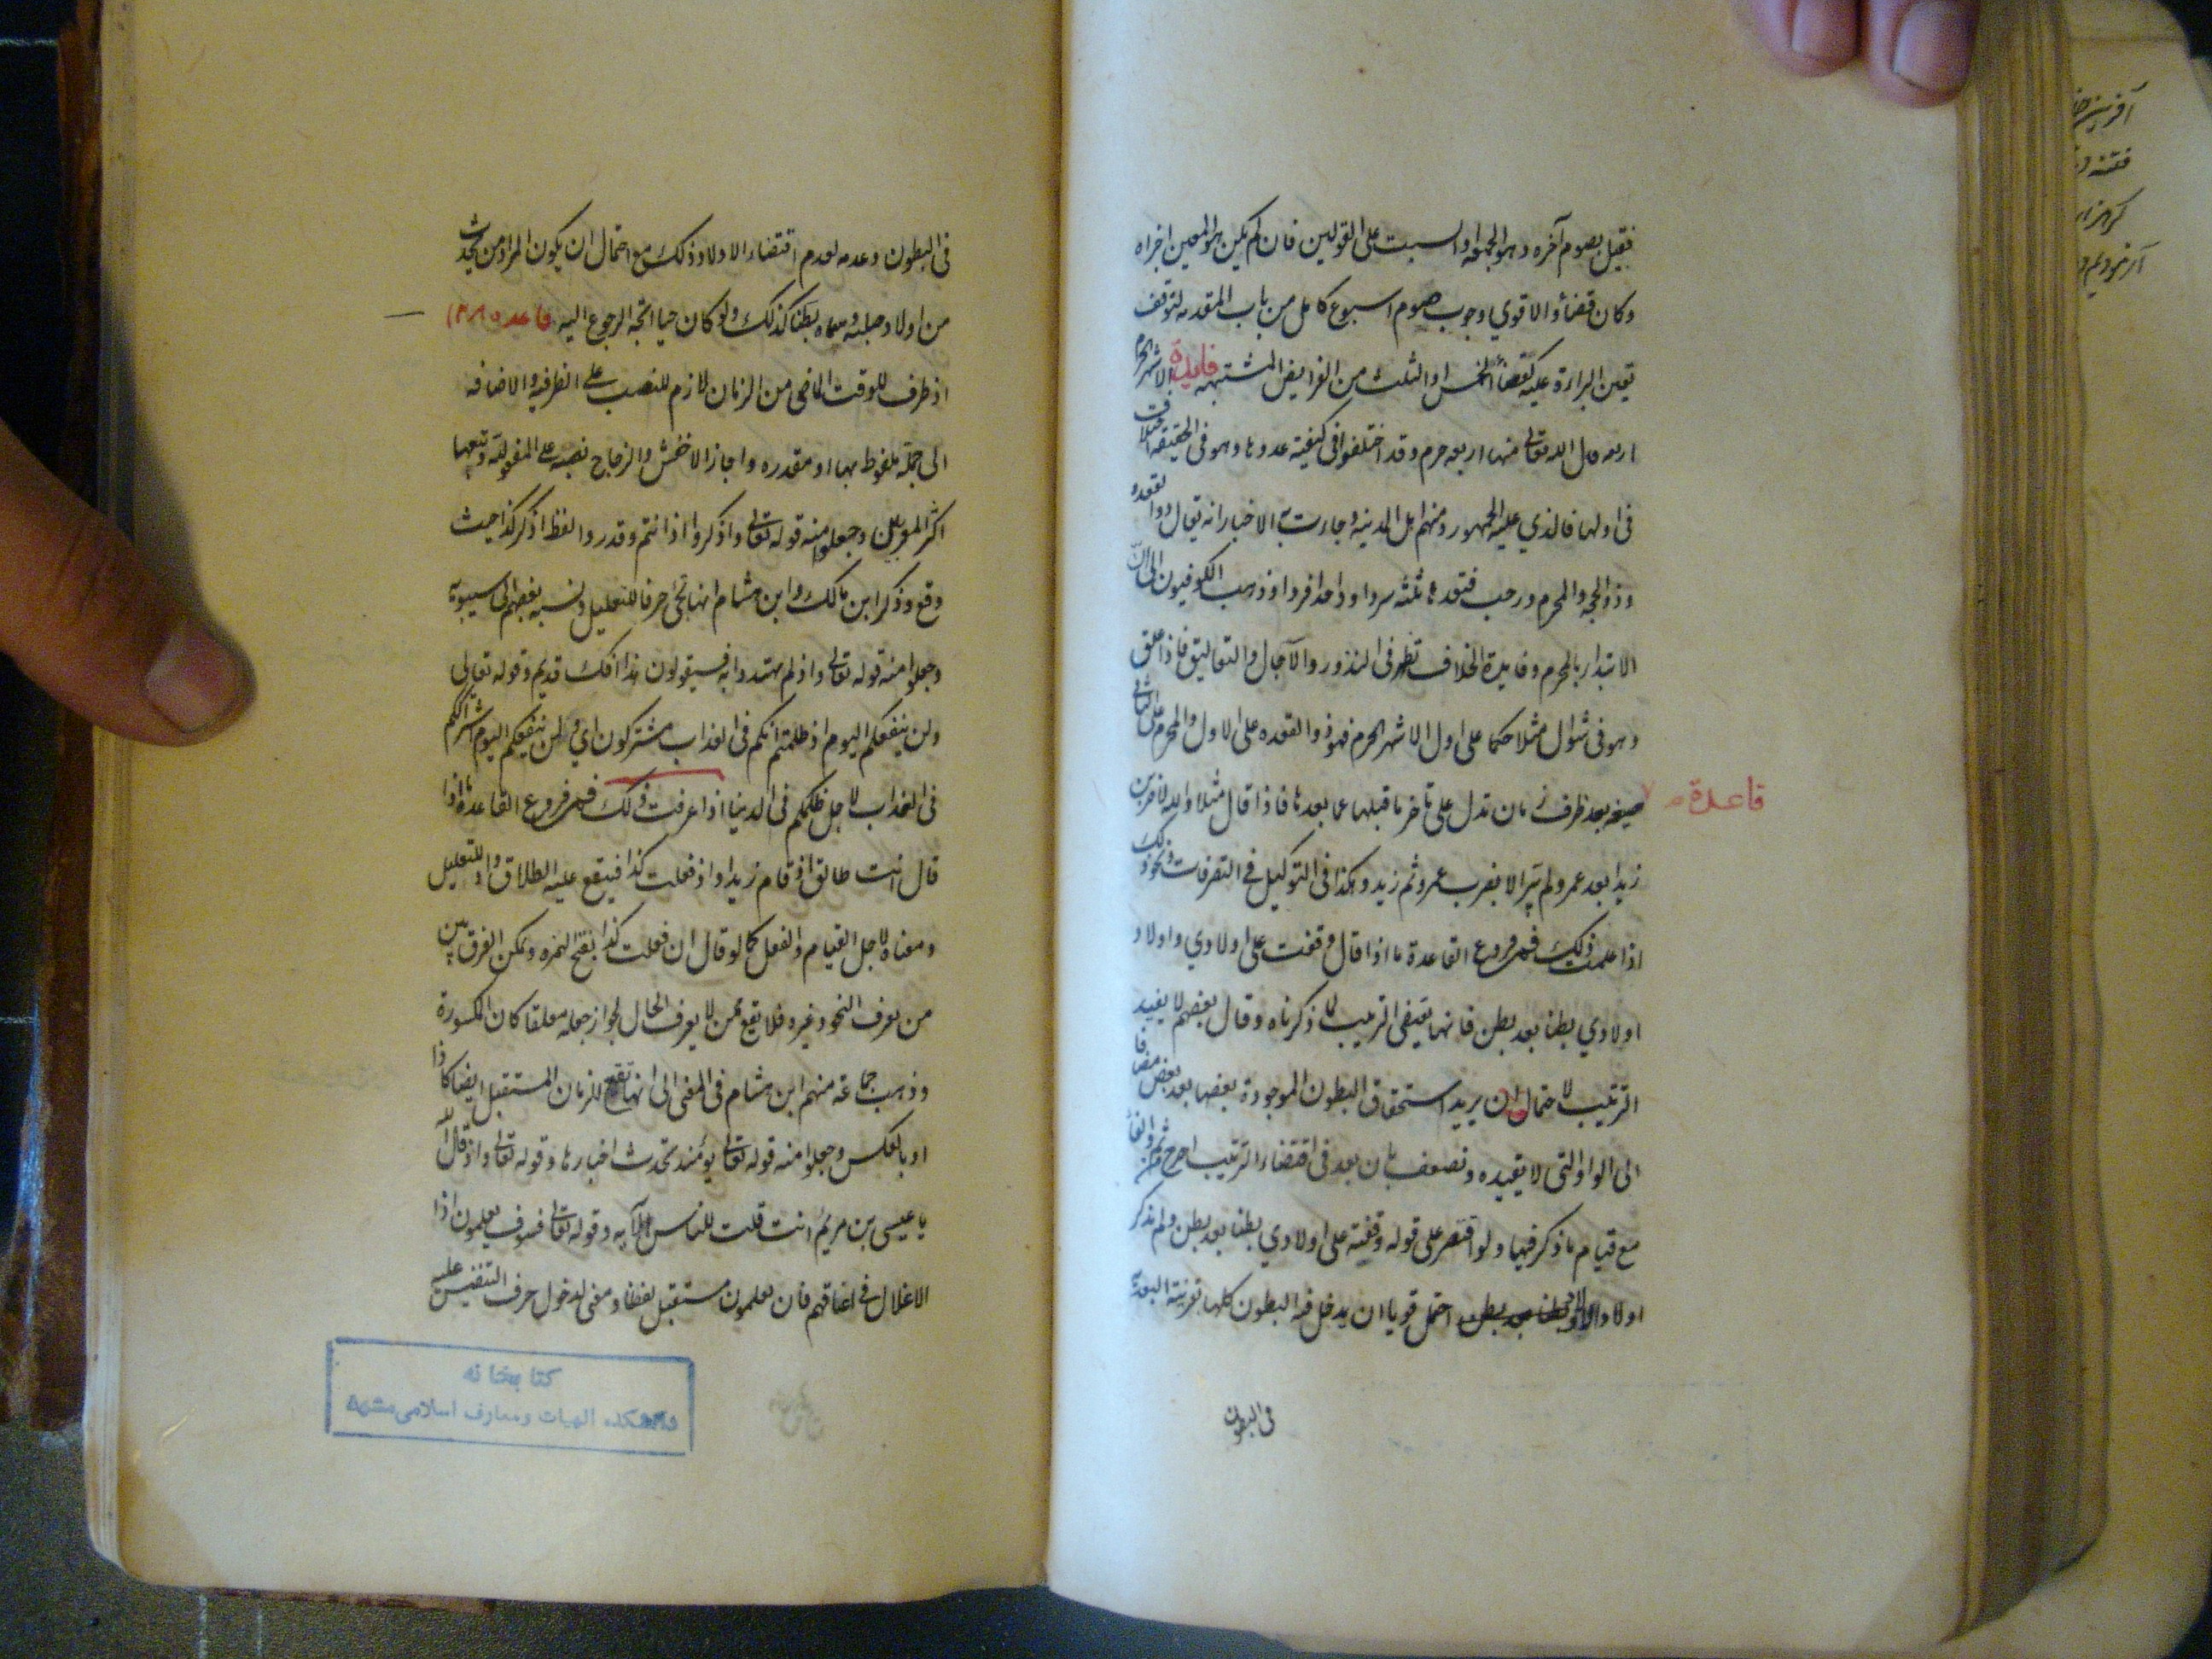 فقيل يصوم آخره وهو الجمعة او السبت على القولين فان لم يكن هو المعين اجزاه
وكان قضاء والاقوي وجوب صوم اسبوع كامل من باب المقدمه لتوقف
تعين البراءة عليه كقضاء الخمس او الثلث من الفرايض المشتبهه فايدة الاشهر الحرم
اربعه قال الله تعالى منها اربعه حرم وقد اختلفوا فى كيفية عدها وهو فى الحقيقة اختلاف
فى اولها فالذي عليه الجمهور ومنهم اهل المدينه وجاءت به الاخبار انه يقال ذو القعده
وذو الحجه والمحرم ورجب فتعدها ثلثه سردا وواحدا فردا وذهب الكوفيون الى ان
الابتداء بالمحرم وفايدة الخلاف تظهر فى النذور والآجال والتعاليق فاذا علق
وهو فى شوال مثلا حكما على اول الاشهر الحرم فهو ذو القعده على الاول والمحرم على الثانى
قاعدة
صيغه بعد ظرف زمان تدل على تاخر ما قبلها عما بعدها فاذا قال مثلا والله لاضربن
زيدا بعد عمرو لم يبر الا بضرب عمرو ثم زيد وهكذا فى التوكيل فى التصرفات ونحو ذلك
اذا علمت ذلك فمن فروع القاعدة ما اذا قال وقفت على اولادي واولاد
اولادي بطنا بعد بطن فانها تقتضى الترتيب لما ذكرناه وقال بعضهم لا يفيد
الترتيب لاحتمال ان يريد استحقاق البطون الموجودة بعضها بعد بعض مضافا
الى الواو التى لا يفيده وتضعف بان بعد فى اقتضاء الترتيب اصرح من ثم والفاء
مع قيام ما ذكر فيها ولو اقتصر على قوله وقفته على اولادي بطنا بعد بطن ولم يذكر
اولاد الاولاد احتمل قويا ان يدخل فيه البطون كلها بقرينة البعديه
فى البطون
فى البطون وعدمه لعدم اقتضاء الاولاد ذلك مع احتمال ان يكون المراد من يحدث
من اولاد صلبه وسماه بطنا كذلك ولو كان حيا اتجه الرجوع اليه قاعده
اذ ظرف للوقت الماضى من الزمان لازم للنصب على الظرفيه والاضافه
الى جملة ملفوظ بها او مقدره واجاز الاخفش والزجاج نصبه على المفعوليه وتبعهما
اكثر المعربين وجعلوا منه قوله تعالى واذكروا اذ انتم وقدروا لفظ اذكر كذا حيث
وقع وذكر ابن مالك وابن هشام انها تجئ حرفا للتعليل ونسبه بعضهم الى سيبويه
وجعلوا منه قوله تعالى واذ لم يهتدوا به فسيقولون هذا افك قديم وقوله تعالى
ولن ينفعكم اليوم اذ ظلمتم انكم فى العذاب مشتركون اي ولن ينفعكم اليوم اشتراككم
فى العذاب لاجل ظلمكم فى الدنيا اذا عرفت ذلك فمن فروع القاعدة ما اذا
قال انت طالق اذ قام زيد او اذ فعلت كذا فيقع عليه الطلاق واذ للتعليل
ومعناه لاجل القيام والفعل كما لو قال ان فعلت كذا بفتح الهمزه ويمكن الفرق بين
من يعرف النحو وغيره فلا يقع ممن لا يعرف الحال لجواز جعله معلقا كان المكسورة
وذهب جماعة منهم ابن هشام فى المغنى الى انها تقع للزمان المستقبل ايضا كاذا
او بالعكس وجعلوا منه قوله تعالى يومئذ تحدث اخبارها وقوله تعالى واذ قال الله
يا عيسى بن مريم انت قلت للناس الآيه وقوله تعالى فسوف يعلمون اذ
الاغلال فى اعناقهم فان يعلمون مستقبل لفظا ومعنى لدخول حرف التنفيس عليه
كتابخانه
دانشكده الهيات ومعارف اسلامى مشهد